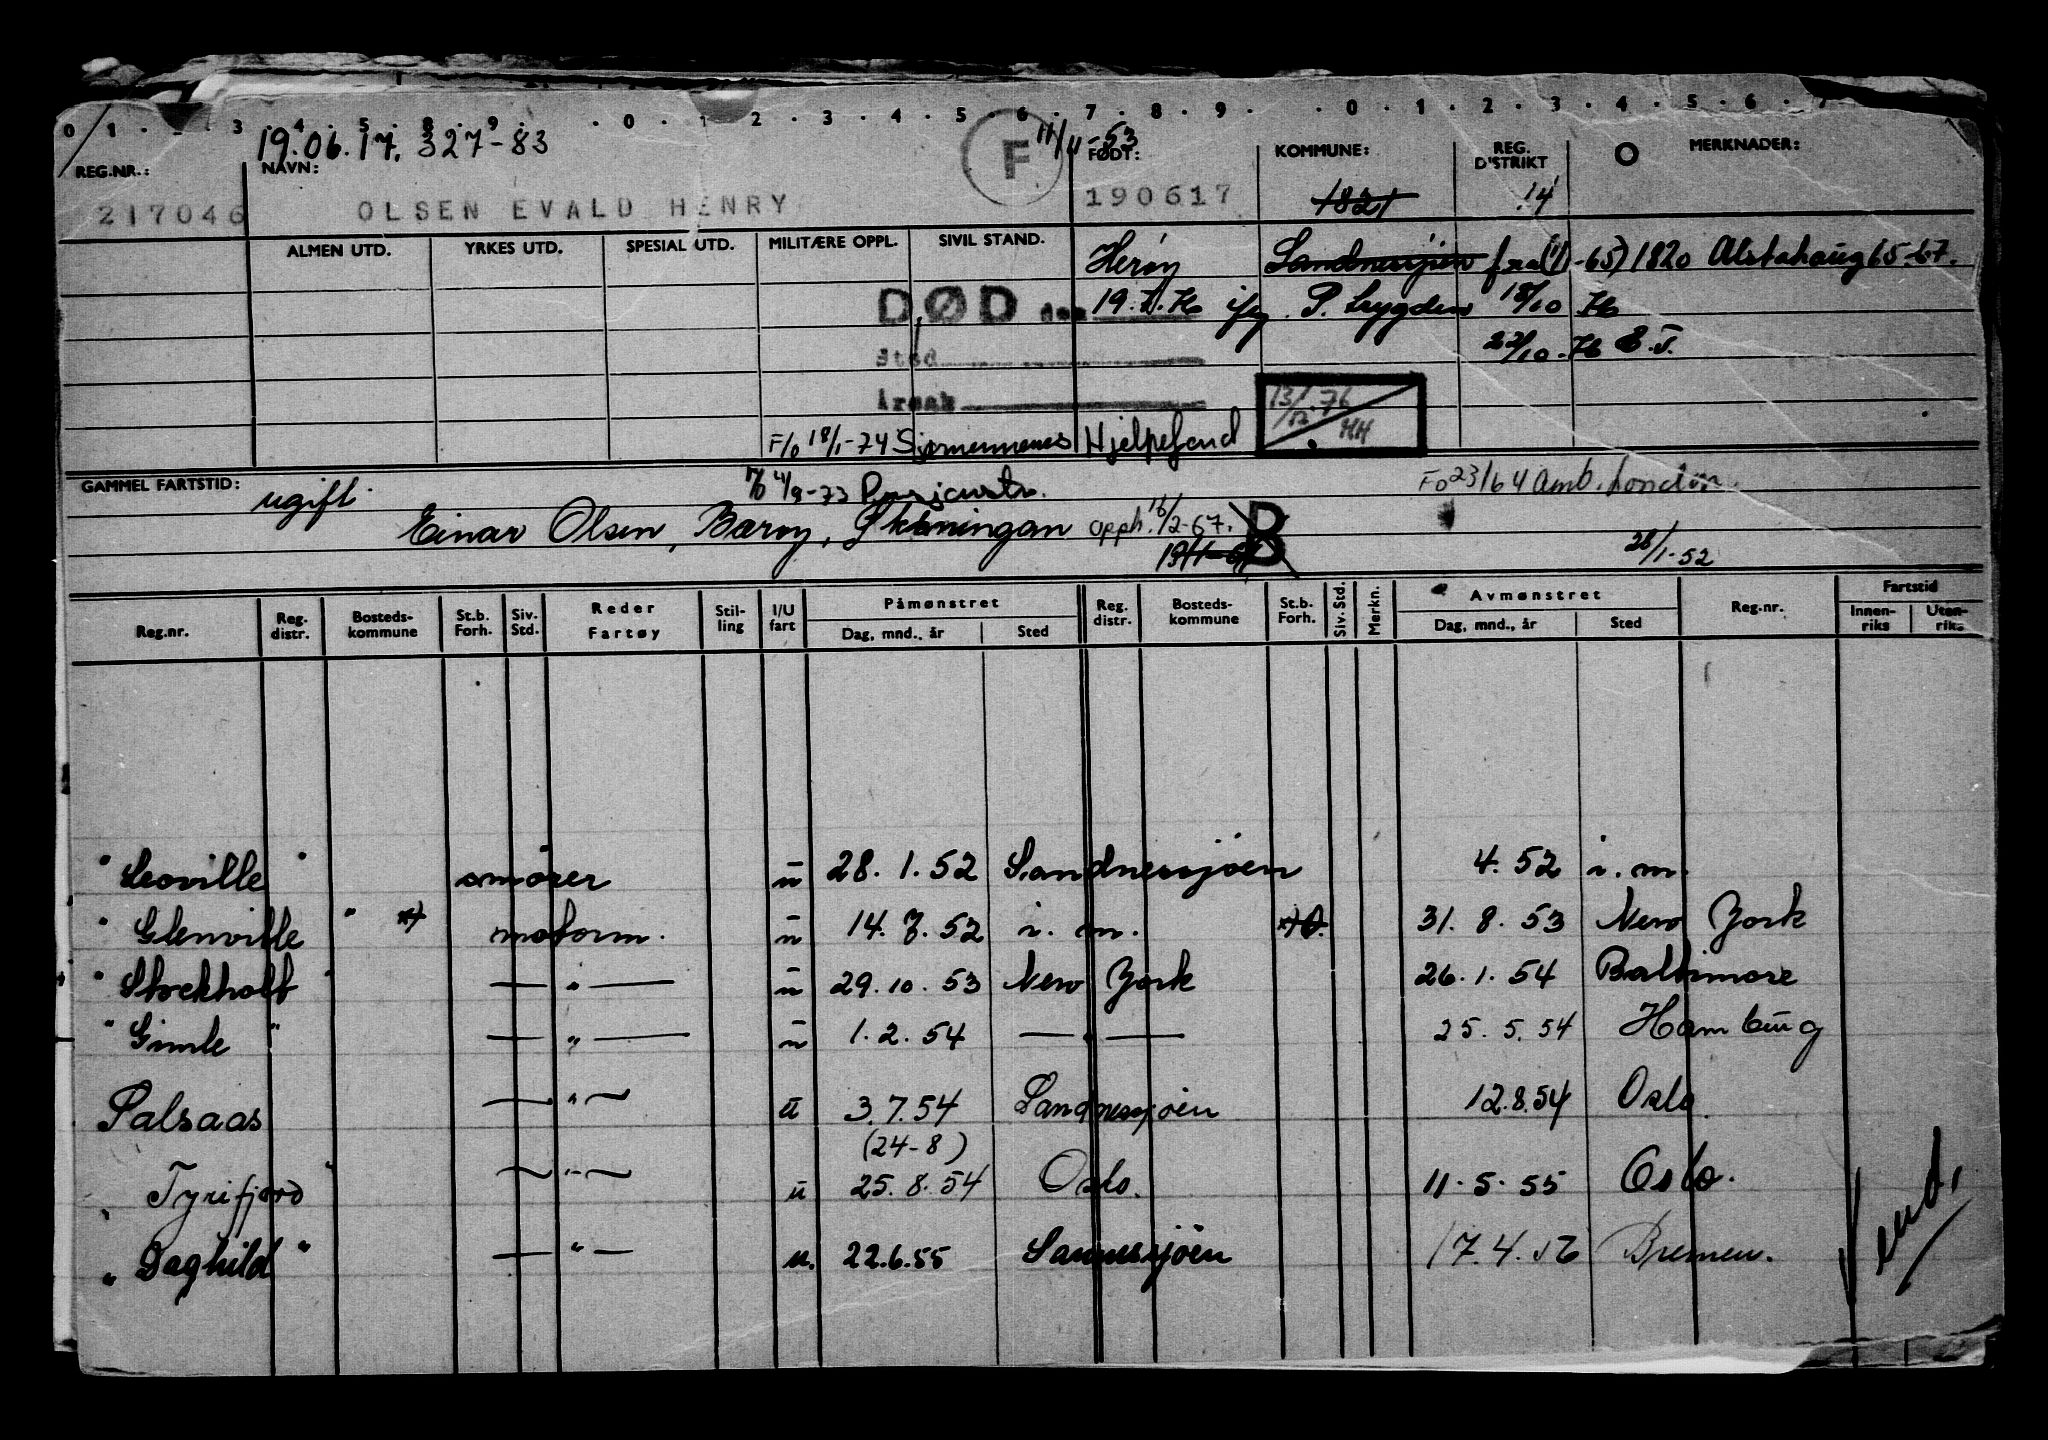 0 1 . _ 3 . 4 . 5 . 8 . 9 . . 0 . 1 . 2 . 3 . 4 . 5 . 6 . 7 . 8 . 9 . . 0 . 1 . 2 . 3 . 4 . 5 . 6 . 7
19.06.17. 327-83 F 11/11-53
REG.NR.: NAVN: FØDT: KOMMUNE: REG. DISTRIKT O MERKNADER:
217046 OLSEN EVALD HENRY 190617 1821 14
ALMEN UTD. YRKES UTD. SPESIAL UTD. MILITÆRE OPPL. SIVIL STAND. Herøy Sandnessjøen fra (1/1-65) 1820 Alstahaug 65-67.
DØD den 19.7.76 ifg. P. Lygden 18/10 76
Sted 22/10-76 E.T.
Årsak 13/12.76 HH
F/o 18/1-74 Sjømennenes Hjelpefond
GAMMEL FARTSTID: ugift F/o 4/9-73 Fo 23/6 4 Amb. London.
Einar Olsen, Barøy, opph. 16/2-67. B
28/1-52
Reg.nr. Reg. distr. Bosteds-kommune St.b. Forh. Siv. Std. Reder Fartøy Stil-ling I/U fart Påmønstret Dag, mnd., år Sted Reg. distr. Bosteds-kommune St.b. Forh. Siv. Std. Merkn. Avmønstret Dag, mnd., år Sted Reg.nr. Fartstid Innen-riks Uten-riks
" Leoville " smører u 28. 1. 52 Sandnessjøen 4. 52 i. m.
" Glenville " x) motorm. u 14. 7. 52 i. m. x) 31. 8. 53 New York
" Stockholt " — " — u 29. 10. 53 New York 26. 1. 54 Baltimore
" Gimle " — " — u 1. 2. 54 — " — 25. 5. 54 Hamburg
Palsaas — " — u 3.7.54 Sandnessjøen 12.8.54 Oslo.
(24-8)
" Tyrifjord " — " — u 25. 8. 54 Oslo. 11-5-55 Oslo.
" Daghild " — " — u. 22.6.55 Sannessjöen 17.4.56 Bremen.
vend.